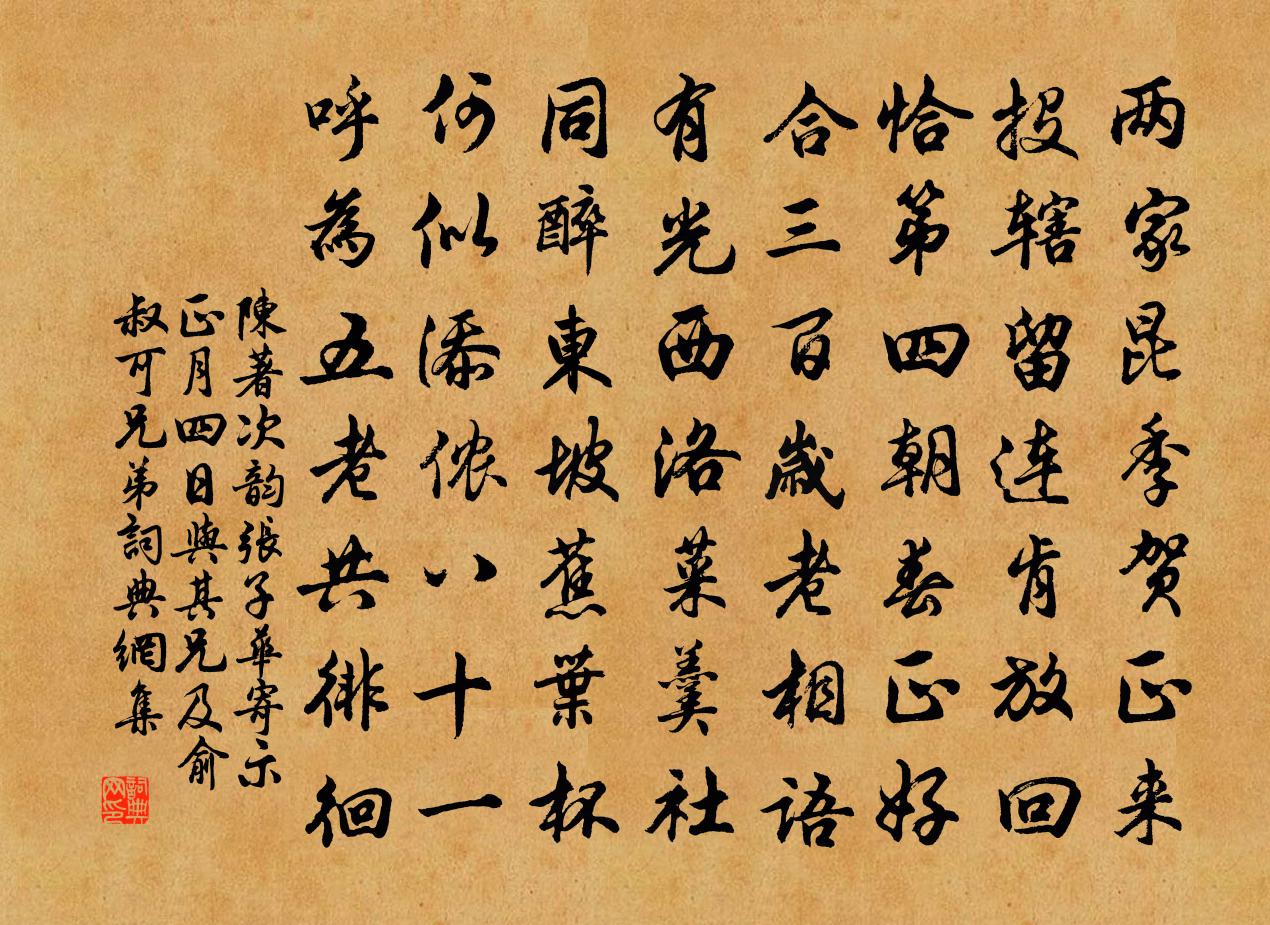 两家昆季贺正来
投辖留连肯放回
恰第四朝春正好
合三百岁老相語
有光西洛菜羹社
同醉東坡蕉葉杯
何似添侬八十一
呼為五老共徘徊
陳著次韵張子華寄示
正月四日與其兄及俞
叔可兄弟詞典網集
詞典
网印